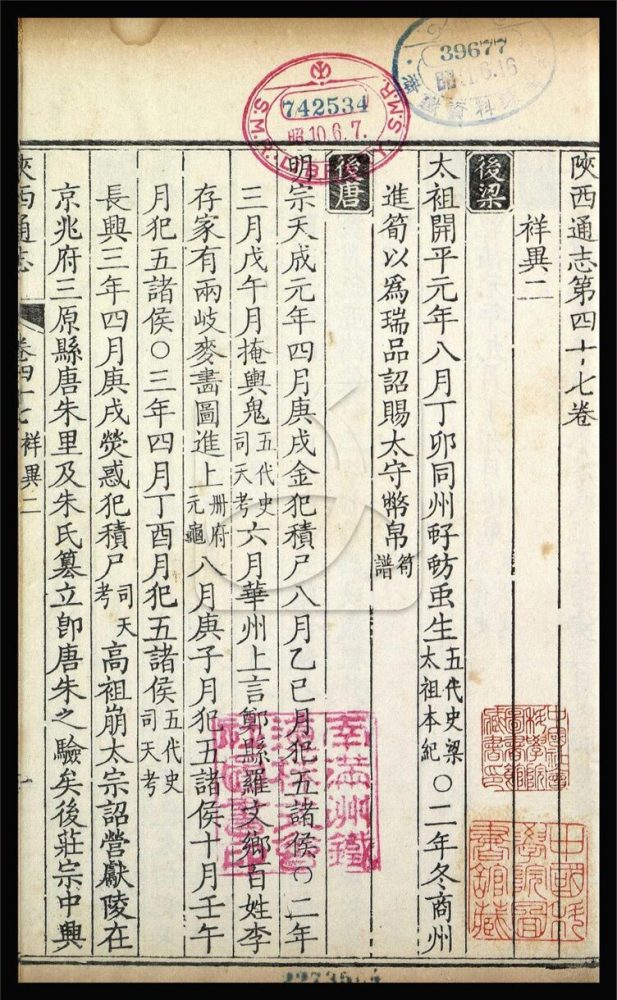 39677
S.M.R. LIBRARY S.M.R.
742534
昭10.6.7.
陝西通志第四十七卷
祥異二
後梁
太祖開平元年八月丁卯同州虸蚄䖝生五代史梁太祖本紀〇二年冬商州
進筍以爲瑞品詔賜太守幣帛筍譜
後唐
明宗天成元年四月庚戌金犯積尸八月乙巳月犯五諸侯〇二年
三月戊午月掩輿鬼五代史司天考六月華州上言鄭縣羅文鄉百姓李
存家有兩岐麥畫圖進上册府元龜八月庚子月犯五諸侯十月壬午
月犯五諸侯〇三年四月丁酉月犯五諸侯五代史司天考
長興三年四月庚戌熒惑犯積尸司天考高祖崩太宗詔營獻陵在
京兆府三原縣唐朱里及朱氏篡立卽唐朱之驗矣後莊宗中興
陝西通志 卷四十七 祥異二